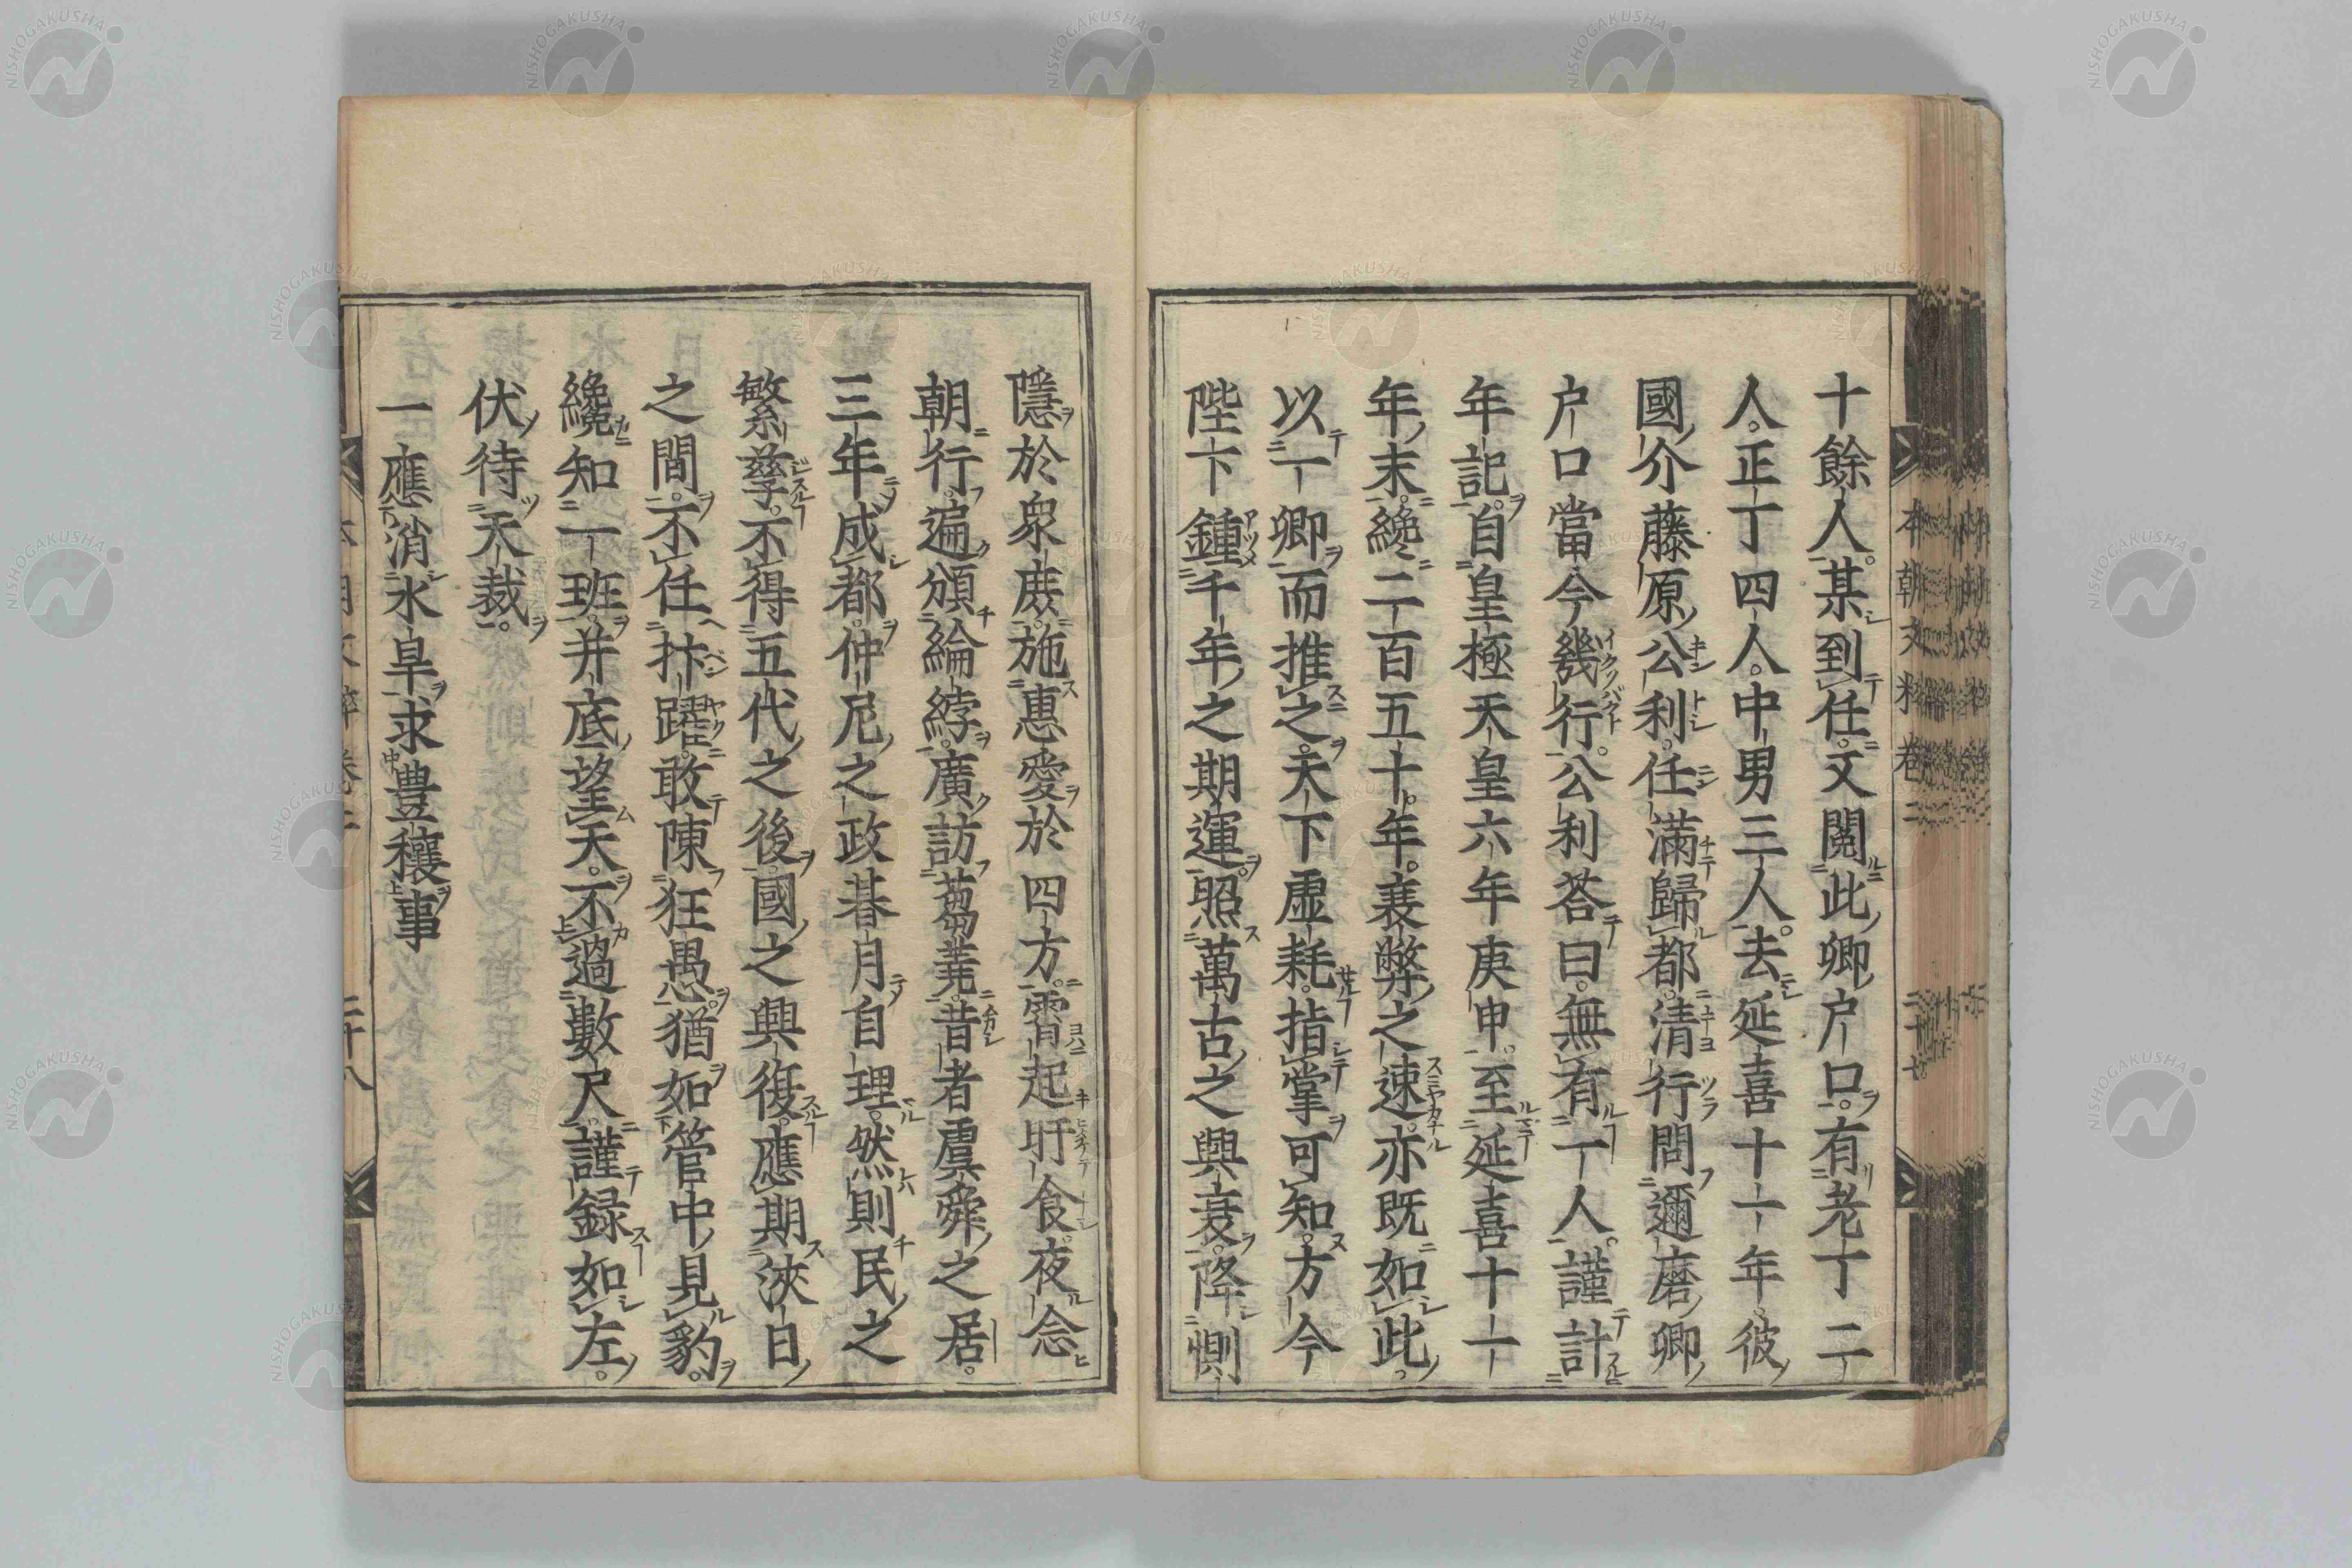 十餘人。某到任。又閲此卿户口。有老丁二
人。正丁四人。中男三人。去延喜十一年。彼
國介藤原公利。任滿歸都。清行問邇磨卿
户口當今幾行。公利荅曰。無有一人。謹計
年記。自皇極天皇六年庚申。至延喜十一
年末。纔二百五十年。衰弊之速。亦既如此。
以一卿而推之。天下虚耗。指掌可知。方今
陛下鍾千年之期運。照萬古之興衰。降惻
隱於衆庻。施惠愛於四方。宵起旰食。夜念
朝行。遍頒綸綍。廣訪蒭蕘。昔者虞舜之居。
三年成都。仲尼之政朞月自理。然則民之
繁孳。不得五代之後。國之興復。應期浹日
之間。不任抃躍。敢陳狂愚。猶如管中見豹。
纔知一班。井底望天。不過數尺。謹録如左。
伏待天裁。
一應消水旱求豊穰事
本朝文粹 卷二 二十七